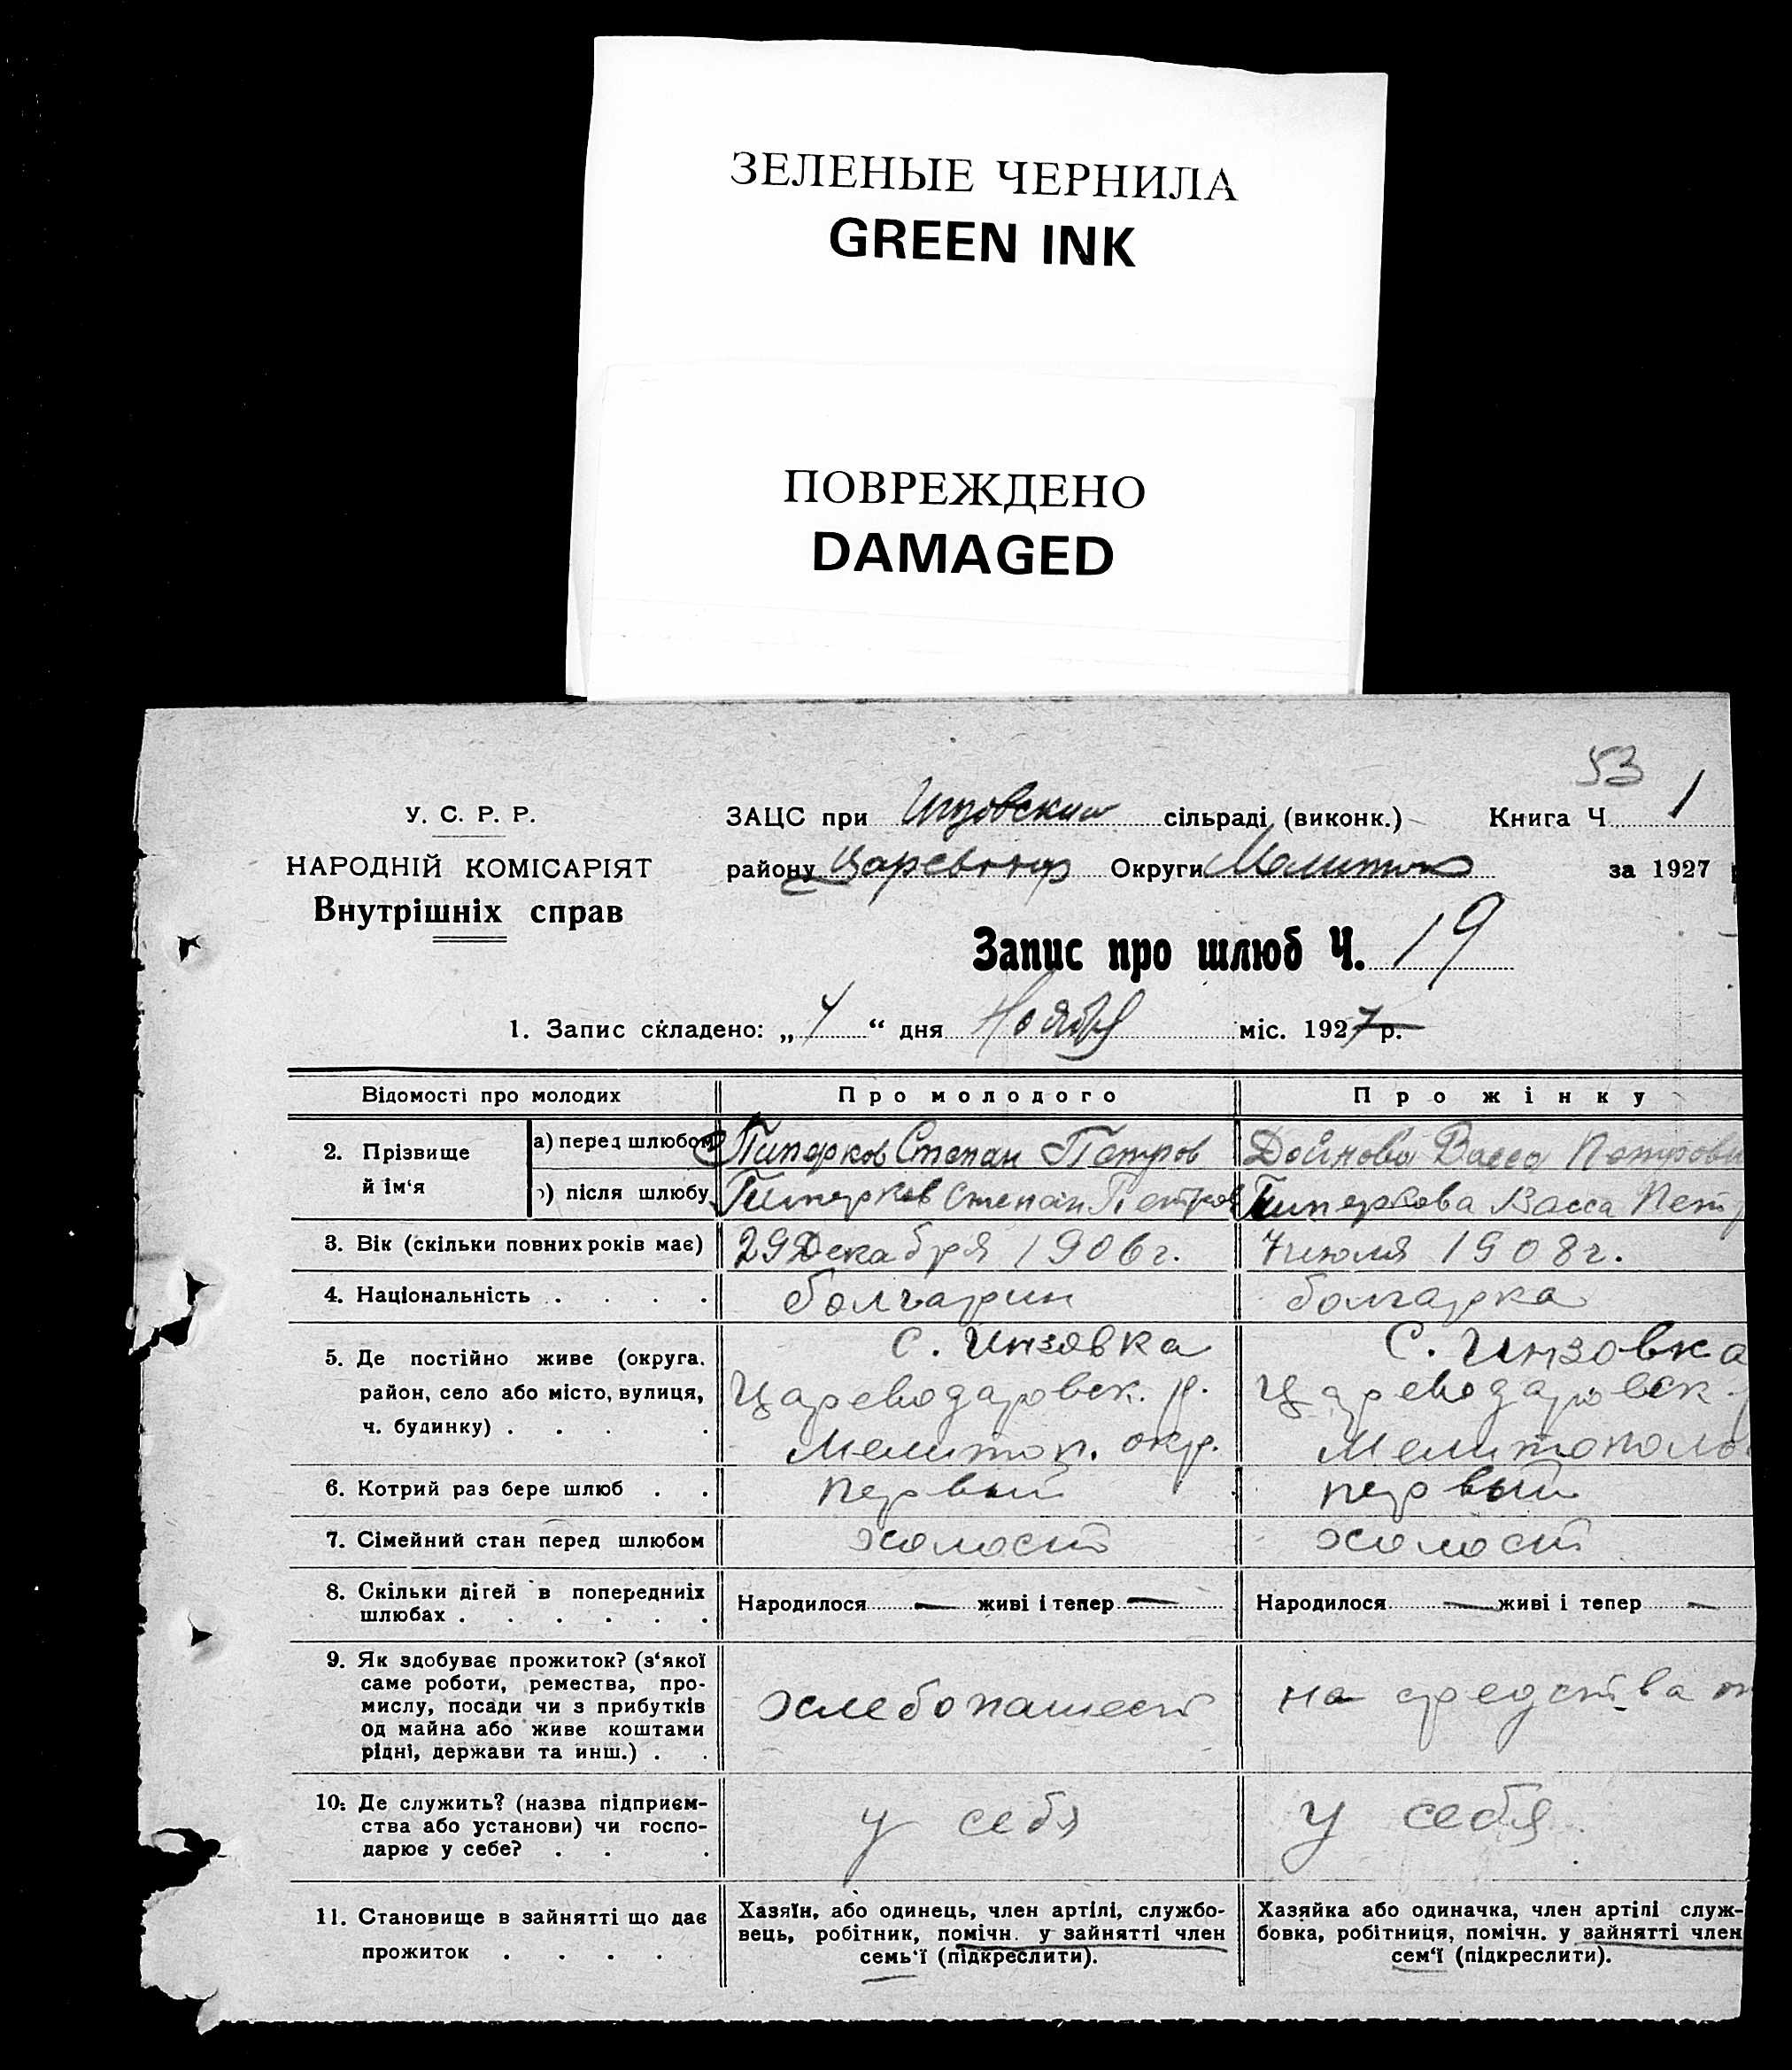 ЗЕЛЕНЫЕ ЧЕРНИЛА
GREEN INK
ПОВРЕЖДЕНО
DAMAGED
53
У. С. Р. Р.
НАРОДНІЙ КОМІСАРІЯТ
Внутрішніх справ
ЗАЦС при Инзовский сільраді (виконк.) Книга Ч. 1
району Округи за 1927
Запис про шлюб Ч. 19
1. Запис складено: „ “ дня Ноября міс. 1927 р.
Відомості про молодих Про молодого Про жінку
2. Прізвище й ім'я
а) перед шлюбом Пиперков Степан Петров Дойнова Васса Петровн
б) після шлюбу Пиперков Степан Петров Пиперкова Васса Петр
3. Вік (скільки повних років має) 29 Декабря 1906 г. 7 июля 1908 г.
4. Національність . . . . болгарин болгарка
5. Де постійно живе (округа, район, село або місто, вулиця, ч. будинку) . . . .
с. Инзовка С. Инзовка
Цареводаровск. р. Цареводаровск.
Мелитоп. окр. Мелитополь
6. Котрий раз бере шлюб . . первый первый
7. Сімейний стан перед шлюбом холост холост
8. Скільки дітей в попередниіх шлюбах . . . . . .
Народилося — живі і тепер — Народилося — живі і тепер —
9. Як здобуває прожиток? (з'якої
саме роботи, ремества, про-
мислу, посади чи з прибутків
од майна або живе коштами
рідні, держави та инш.) . .
хлебопашест на средства от
10. Де служить? (назва підприєм-
ства або установи) чи госпо-
дарює у себе? . . .
у себя у себя
11. Становище в зайнятті що дає
прожиток . . . .
Хазяїн, або одинець, член артілі, службо-
вець, робітник, помічн. у зайнятті член
семь'ї (підкреслити).
Хазяйка або одиначка, член артілі служ-
бовка, робітниця, помічн. у зайнятті член
сем'ї (підкреслити).